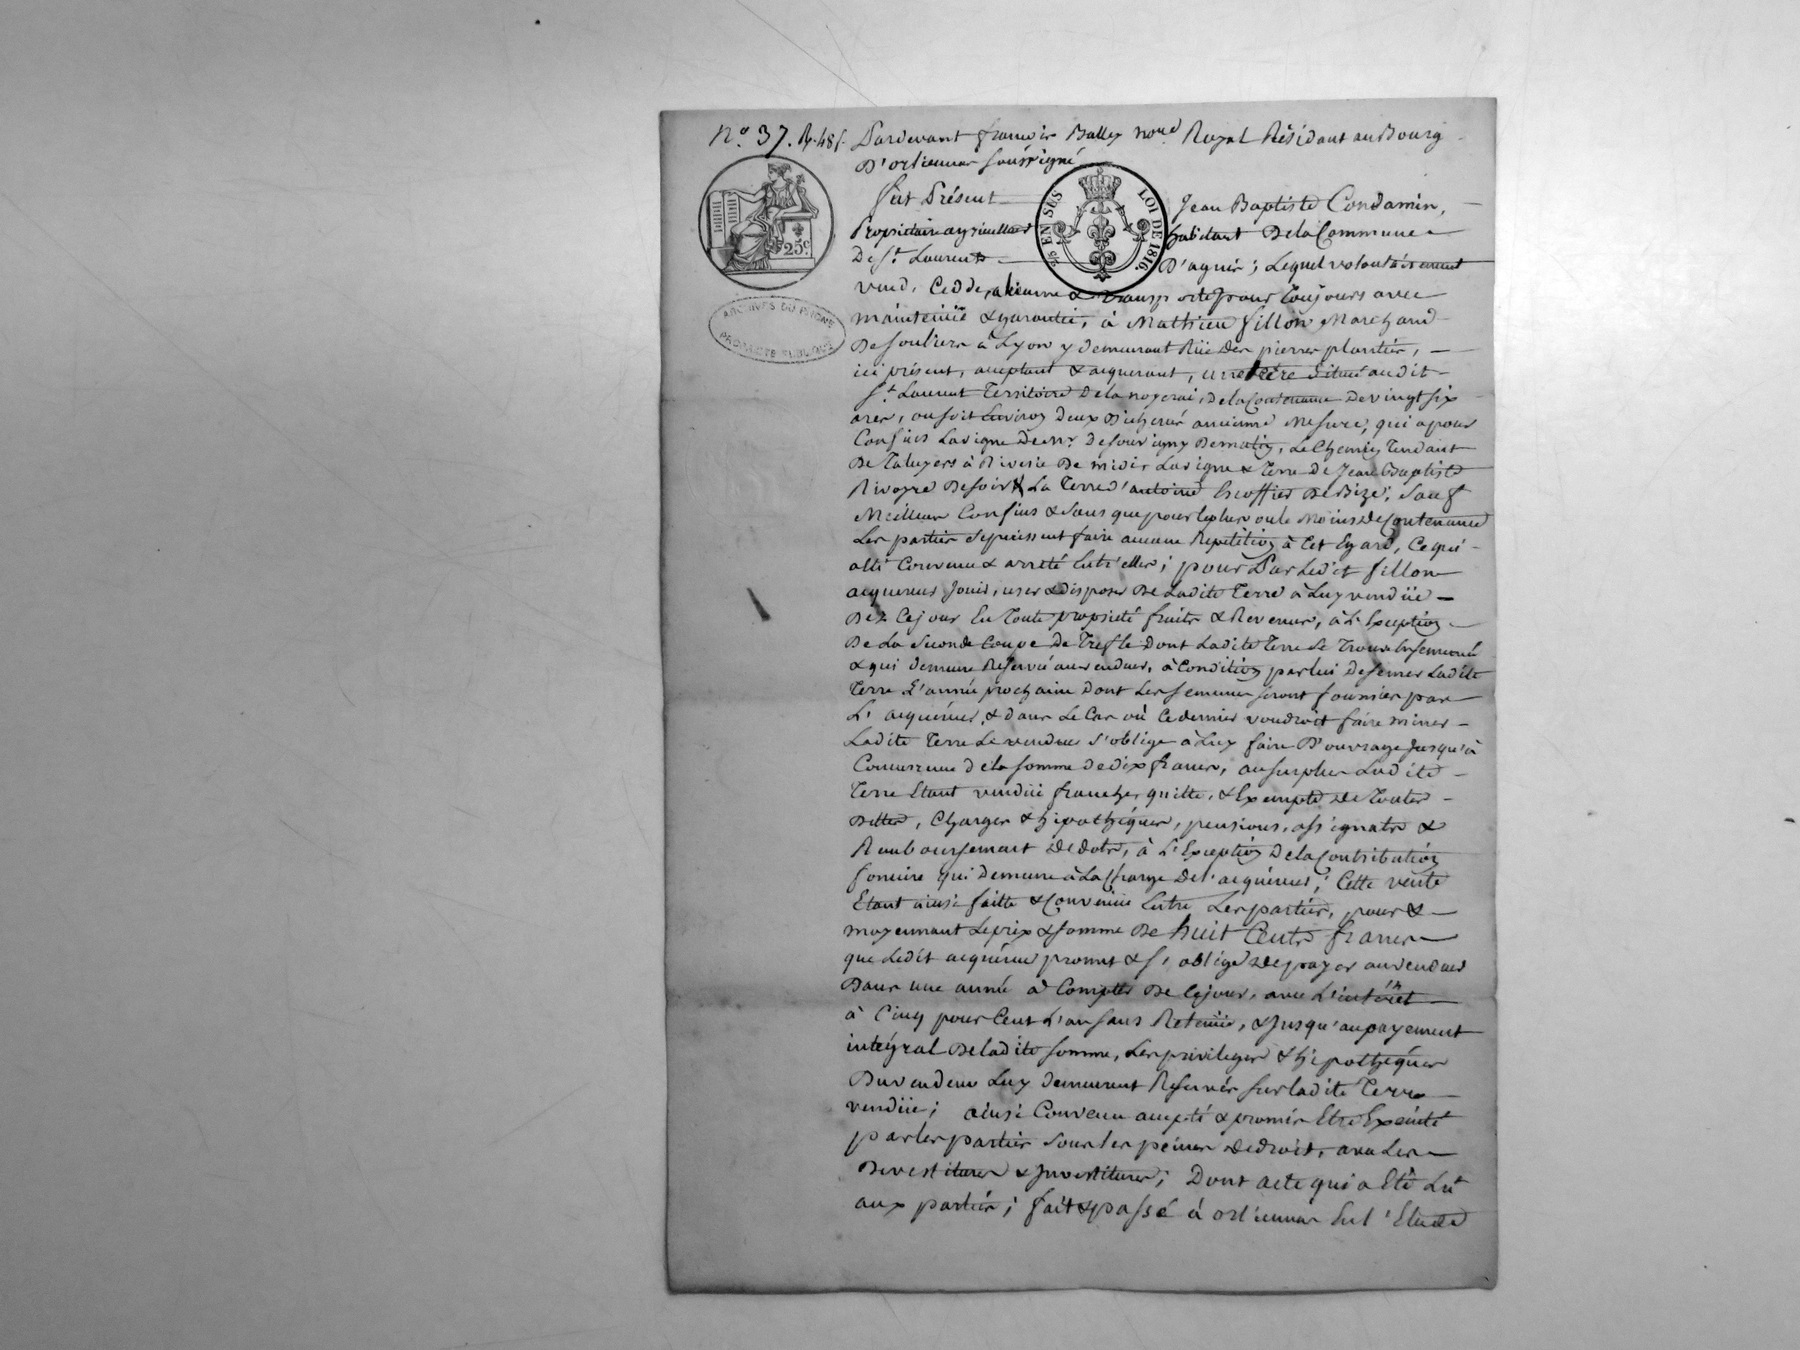 N.° 37. R. 48 f. Pardevant françois Balley no.re Royal Résidant au Bourg
D'orliennas soussigné
fut Présent Jean Baptiste Condamin,
Propriétaire agriculteur habitant De la Commune
De S.t Laurent D'agnis; Lequel volontairement
vend, Cedde, alienne & transporte pour toujours avec
maintenüe & garantie, à Mathieu fillon Marchand
De souliers à Lyon y demeurant Rüe Des pierres plantés,
ici présent, acceptant & acquerant, une terre située audit
S.t Laurent Territoire De la noyeraie, De la Contenance De vingt six
ares, ou soit Environ Deux Bicherée ancienne Mesure, qui a pour
Confins La vigne De m.r De souvigny De matin, Le Chemin Tendant
De Taluyers à Riverie De midi, La vigne & Terre De Jean Baptiste
Rivoyre De soir & La Terre d'antoine Escoffier De Bize, Sauf
Meilleur Confins & sans que pour le plus ou le Moins De Contenance
Les parties se puissent faire aucune Répétition à Cet Egard, Ce qui
a été Convenu & arrêté Entr'elles; pour Par Ledit fillon
acquereur Jouir, user & disposer De Ladite Terre à Luy vendüe
Dès Ce jour En Toute propriété fruits & Revenus, à L'Exception
De La Seconde Coupe De Trefle Dont Ladite Terre Se Trouve Ensemencé
& qui Demeure Réservée au vendeur, à Condition par lui De semer Ladite
Terre L'année prochaine Dont Les semences seront fournies par
L'acquéreur, & Dans Le Cas où Ce dernier voudroit faire miner
Ladite Terre Le vendeur S'oblige à Luy faire D'ouvrage Jusqu'à
Concurrence De la somme De dix francs, au surplus Ladite
Terre Etant vendüe franche, quitte, & Exempte De Toutes
Dettes, Charges & hipothéques, pensions, assignats &
Remboursement De dots, à L'Exception De la Contribution
fonciere qui Demeure à La Charge De l'acquéreur; Cette vente
Etant ainsi faitte & Convenüe Entre Les parties, pour &
moyennant Le prix & somme De huit Cents francs
que Ledit acquéreur promet & s'oblige De payer au vendeur
Dans une année à Compter De Ce jour, avec L'intérêt
à Cinq pour Cent L'an sans Retenüe, & Jusqu'au payement
intégral De ladite somme, Les privileges & hipothéques
Du vendeur Luy Demeurent Reservés sur ladite Terre
vendüe; ainsi Convenu accepté & promis Etre Exécuté
par les parties sous les peines De droit, avec Les
Devestitures & Investitures; Dont acte qui a Eté Lu
aux parties; fait & passé à orlienas En l'Etude
25.c
25 EN SES
LOI DE 1816.
ARCHIVES DU RHÔNE
PROPRIETE PUBLIQUE